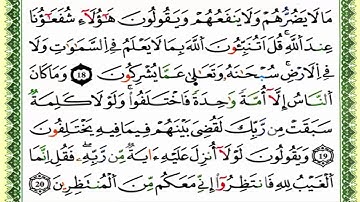 مَا لَا يَضُرُّهُمْ وَلَا يَنفَعُهُمْ وَيَقُولُونَ هَٰٓؤُلَآءِ شُفَعَٰٓؤُنَا
عِندَ ٱللَّهِ ۚ قُلْ أَتُنَبِّـُٔونَ ٱللَّهَ بِمَا لَا يَعْلَمُ فِى ٱلسَّمَٰوَٰتِ وَلَا
فِى ٱلْأَرْضِ ۚ سُبْحَٰنَهُۥ وَتَعَٰلَىٰ عَمَّا يُشْرِكُونَ ١٨ وَمَا كَانَ
ٱلنَّاسُ إِلَّآ أُمَّةً وَٰحِدَةً فَٱخْتَلَفُوا۟ ۚ وَلَوْلَا كَلِمَةٌ
سَبَقَتْ مِن رَّبِّكَ لَقُضِىَ بَيْنَهُمْ فِيمَا فِيهِ يَخْتَلِفُونَ
١٩ وَيَقُولُونَ لَوْلَآ أُنزِلَ عَلَيْهِ ءَايَةٌ مِّن رَّبِّهِۦ ۖ فَقُلْ إِنَّمَا
ٱلْغَيْبُ لِلَّهِ فَٱنتَظِرُوٓا۟ إِنِّى مَعَكُم مِّنَ ٱلْمُنتَظِرِينَ ٢٠